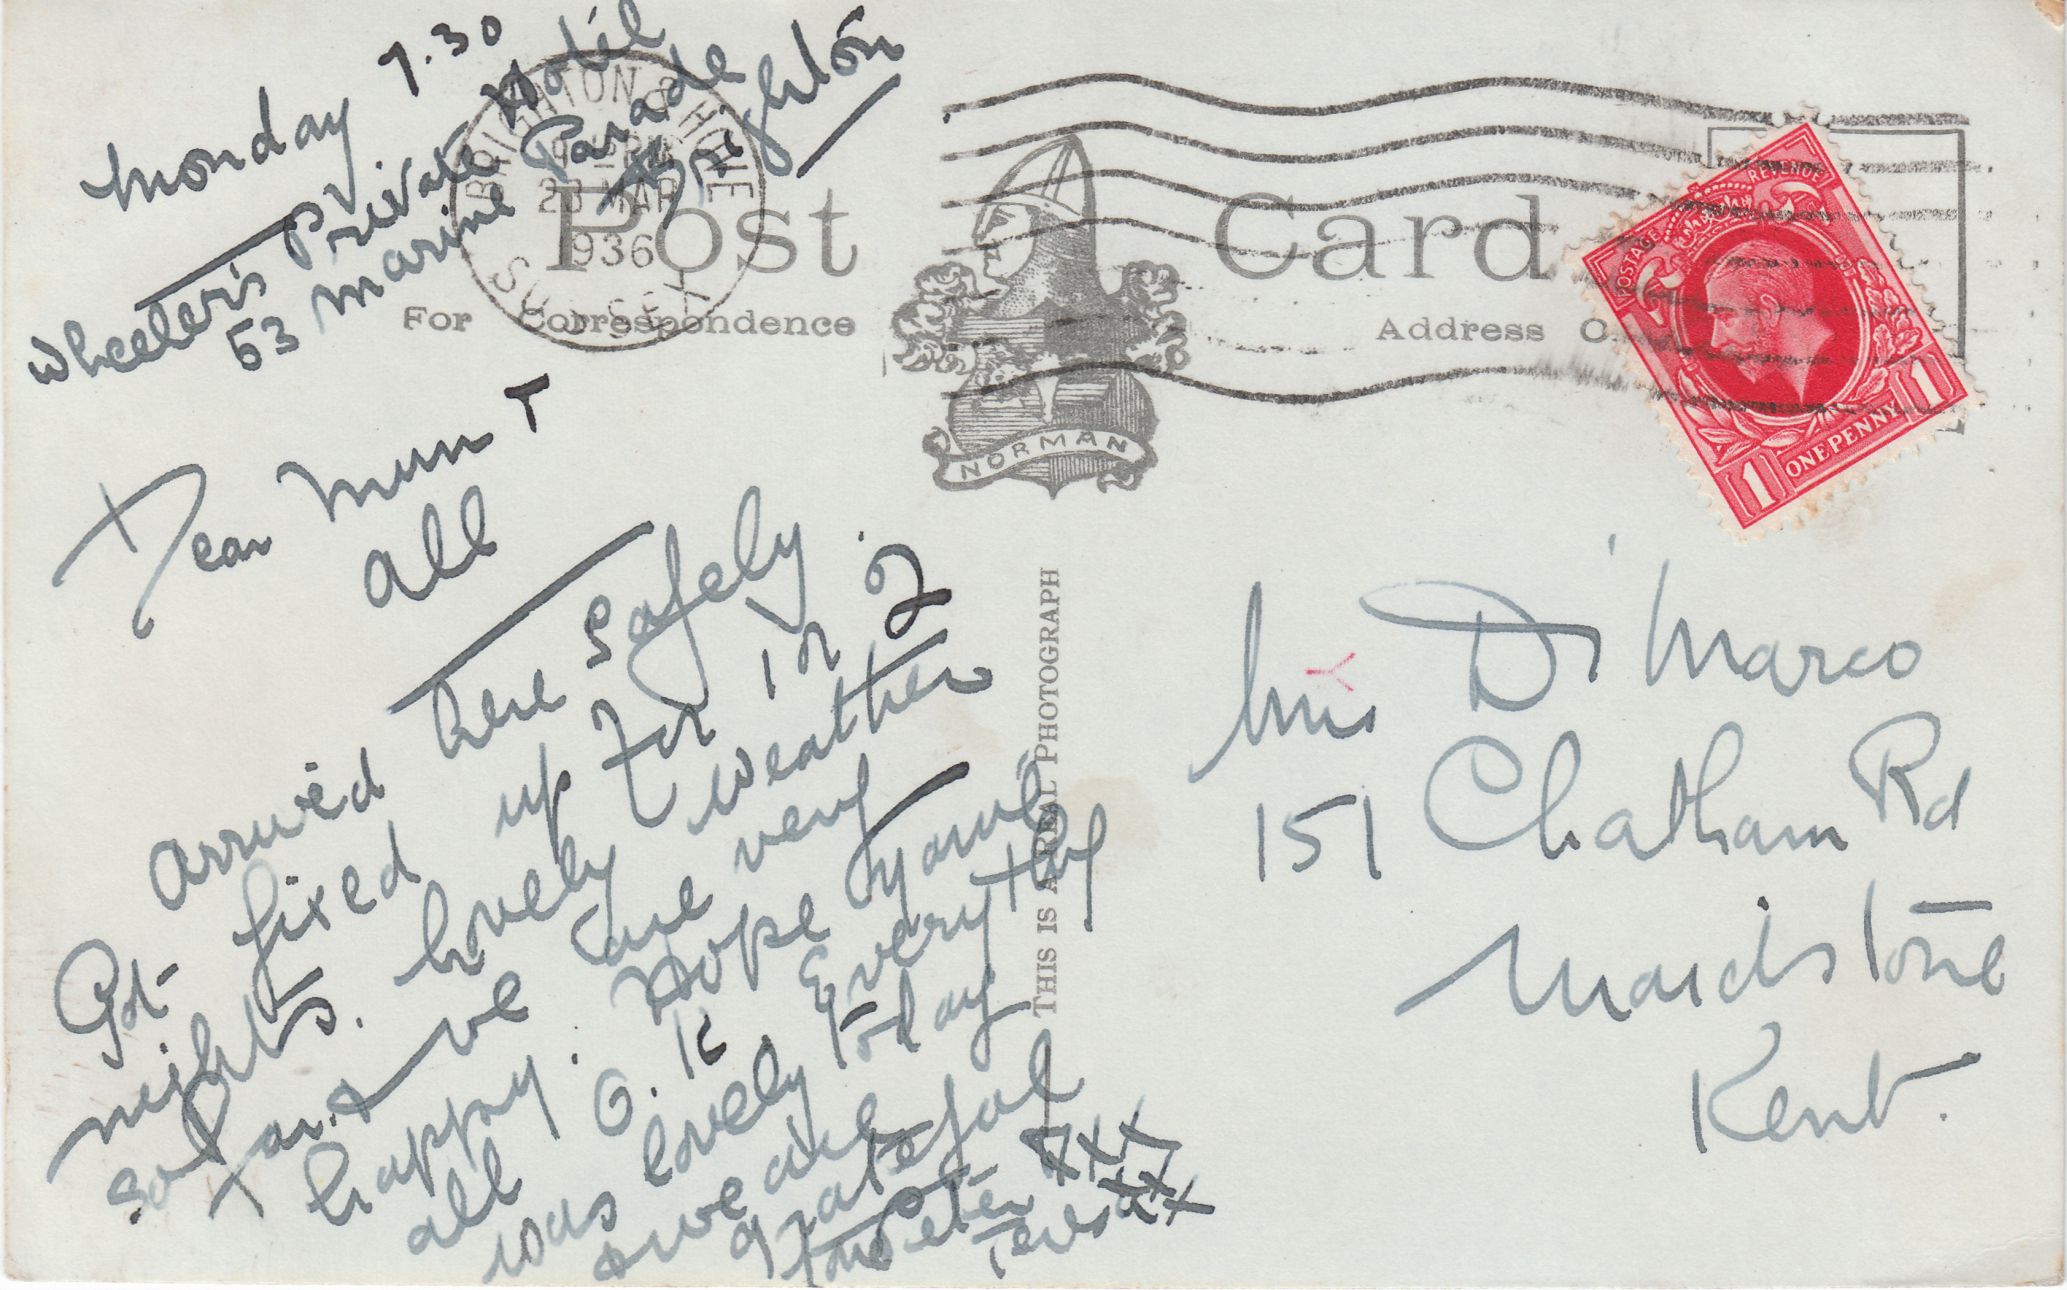 Monday 7.30
Wheeler's Private Hotel
53 Marine Parade
Brighton
BRIGHTON & HOVE
PM
23 MAR
1936
SUSSEX
Post Card
For Correspondence
Address O
POSTAGE REVENUE
1 ONE PENNY 1
NORMAN
THIS IS A REAL PHOTOGRAPH
Dear Mum +
all
Arrived here safely.
Got fixed up for 1 or 2
nights. Lovely weather
so far. & we are very
happy. Hope you're
all O.K. Everything
was lovely today
& we are
grateful
Peter xxx
Teresa xxx
Mrs Di Marco
151 Chatham Rd
Maidstone
Kent.